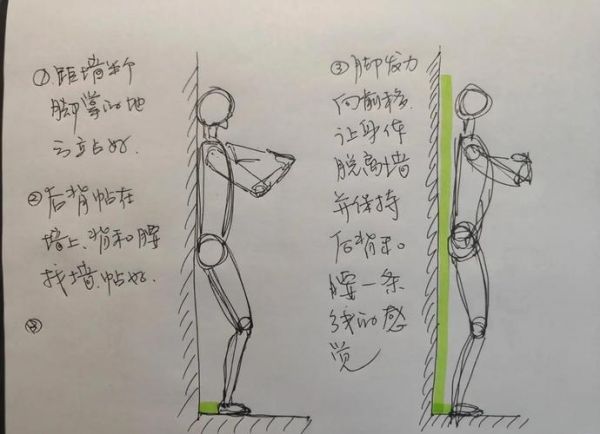 ①距墙半个
脚掌的地
方站好.
②后背帖在
墙上.背和腰
找墙帖好.
③
③脚发力
向前移.
让身体
脱离墙
并保持
后背和
腰一条
线的感
觉